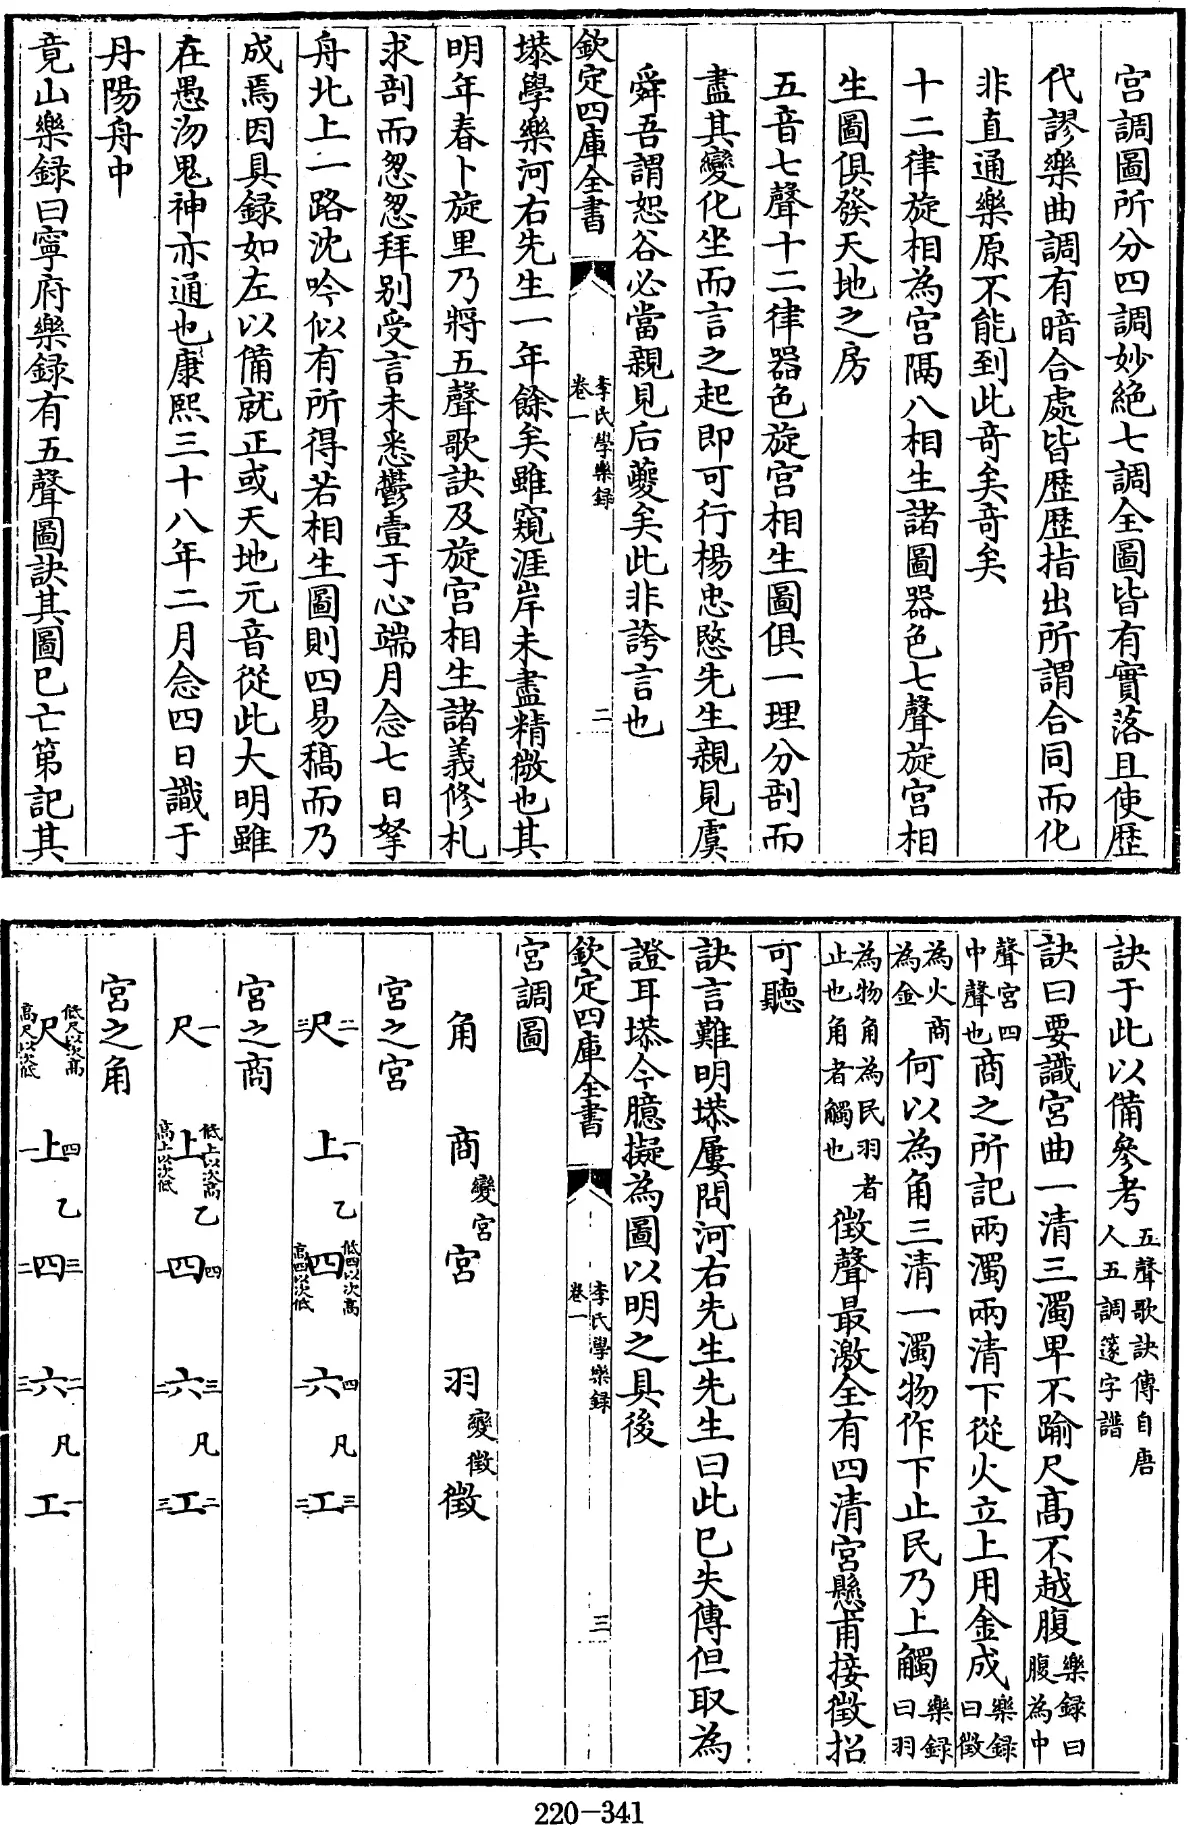 宮調圖所分四調妙絶七調全圖皆有實落且使歷
代謬樂曲調有暗合處皆歴歴指出所謂合同而化
非直通樂原不能到此竒矣竒矣
十二律旋相為宮隔八相生諸圖器色七聲旋宮相
生圖俱發天地之房
五音七聲十二律器色旋宮相生圖俱一理分剖而
盡其變化坐而言之起即可行楊忠愍先生親見虞
舜吾謂恕谷必當親見后夔矣此非誇言也
欽定四庫全書
李氏學樂録
卷一
二
塨學樂河右先生一年餘矣雖窺涯岸未盡精微也其
明年春卜旋里乃將五聲歌訣及旋宮相生諸義修札
求剖而怱怱拜别受言未悉鬱壹于心端月念七日拏
舟北上一路沈吟似有所得若相生圖則四易稿而乃
成焉因具録如左以備就正或天地元音從此大明雖
在愚沕鬼神亦通也康熙三十八年二月念四日識于
丹陽舟中
竟山樂録曰寧府樂録有五聲圖訣其圖已亡第記其
訣于此以備參考五聲歌訣傳自唐
人五調簃字譜
訣曰要識宮曲一清三濁卑不踰尺高不越腹樂録曰
腹為中
聲宮四
中聲也商之所記兩濁兩清下從火立上用金成樂録
曰徵
為火商
為金何以為角三清一濁物作下止民乃上觸樂録
曰羽
為物角為民羽者
止也角者觸也徵聲最激全有四清宮懸甫接徵招
可聽
訣言難明塨屢問河右先生先生曰此已失傳但取為
證耳塨今臆擬為圖以明之具後
欽定四庫全書
李氏學樂録
卷一
三
宮調圖
角 商 變宮 宮 羽 變徵 徵
宮之宮
二尺三 上一 乙 低四以次高四高四以次低 四六一 凡 三工三
宮之商
一尺 低上以次高上高上以次低 乙 四四一 三六二 凡 二工三
宮之角
低尺以次高尺高尺以次低 四上一 乙 三四二 二六三 凡 一工
220-341